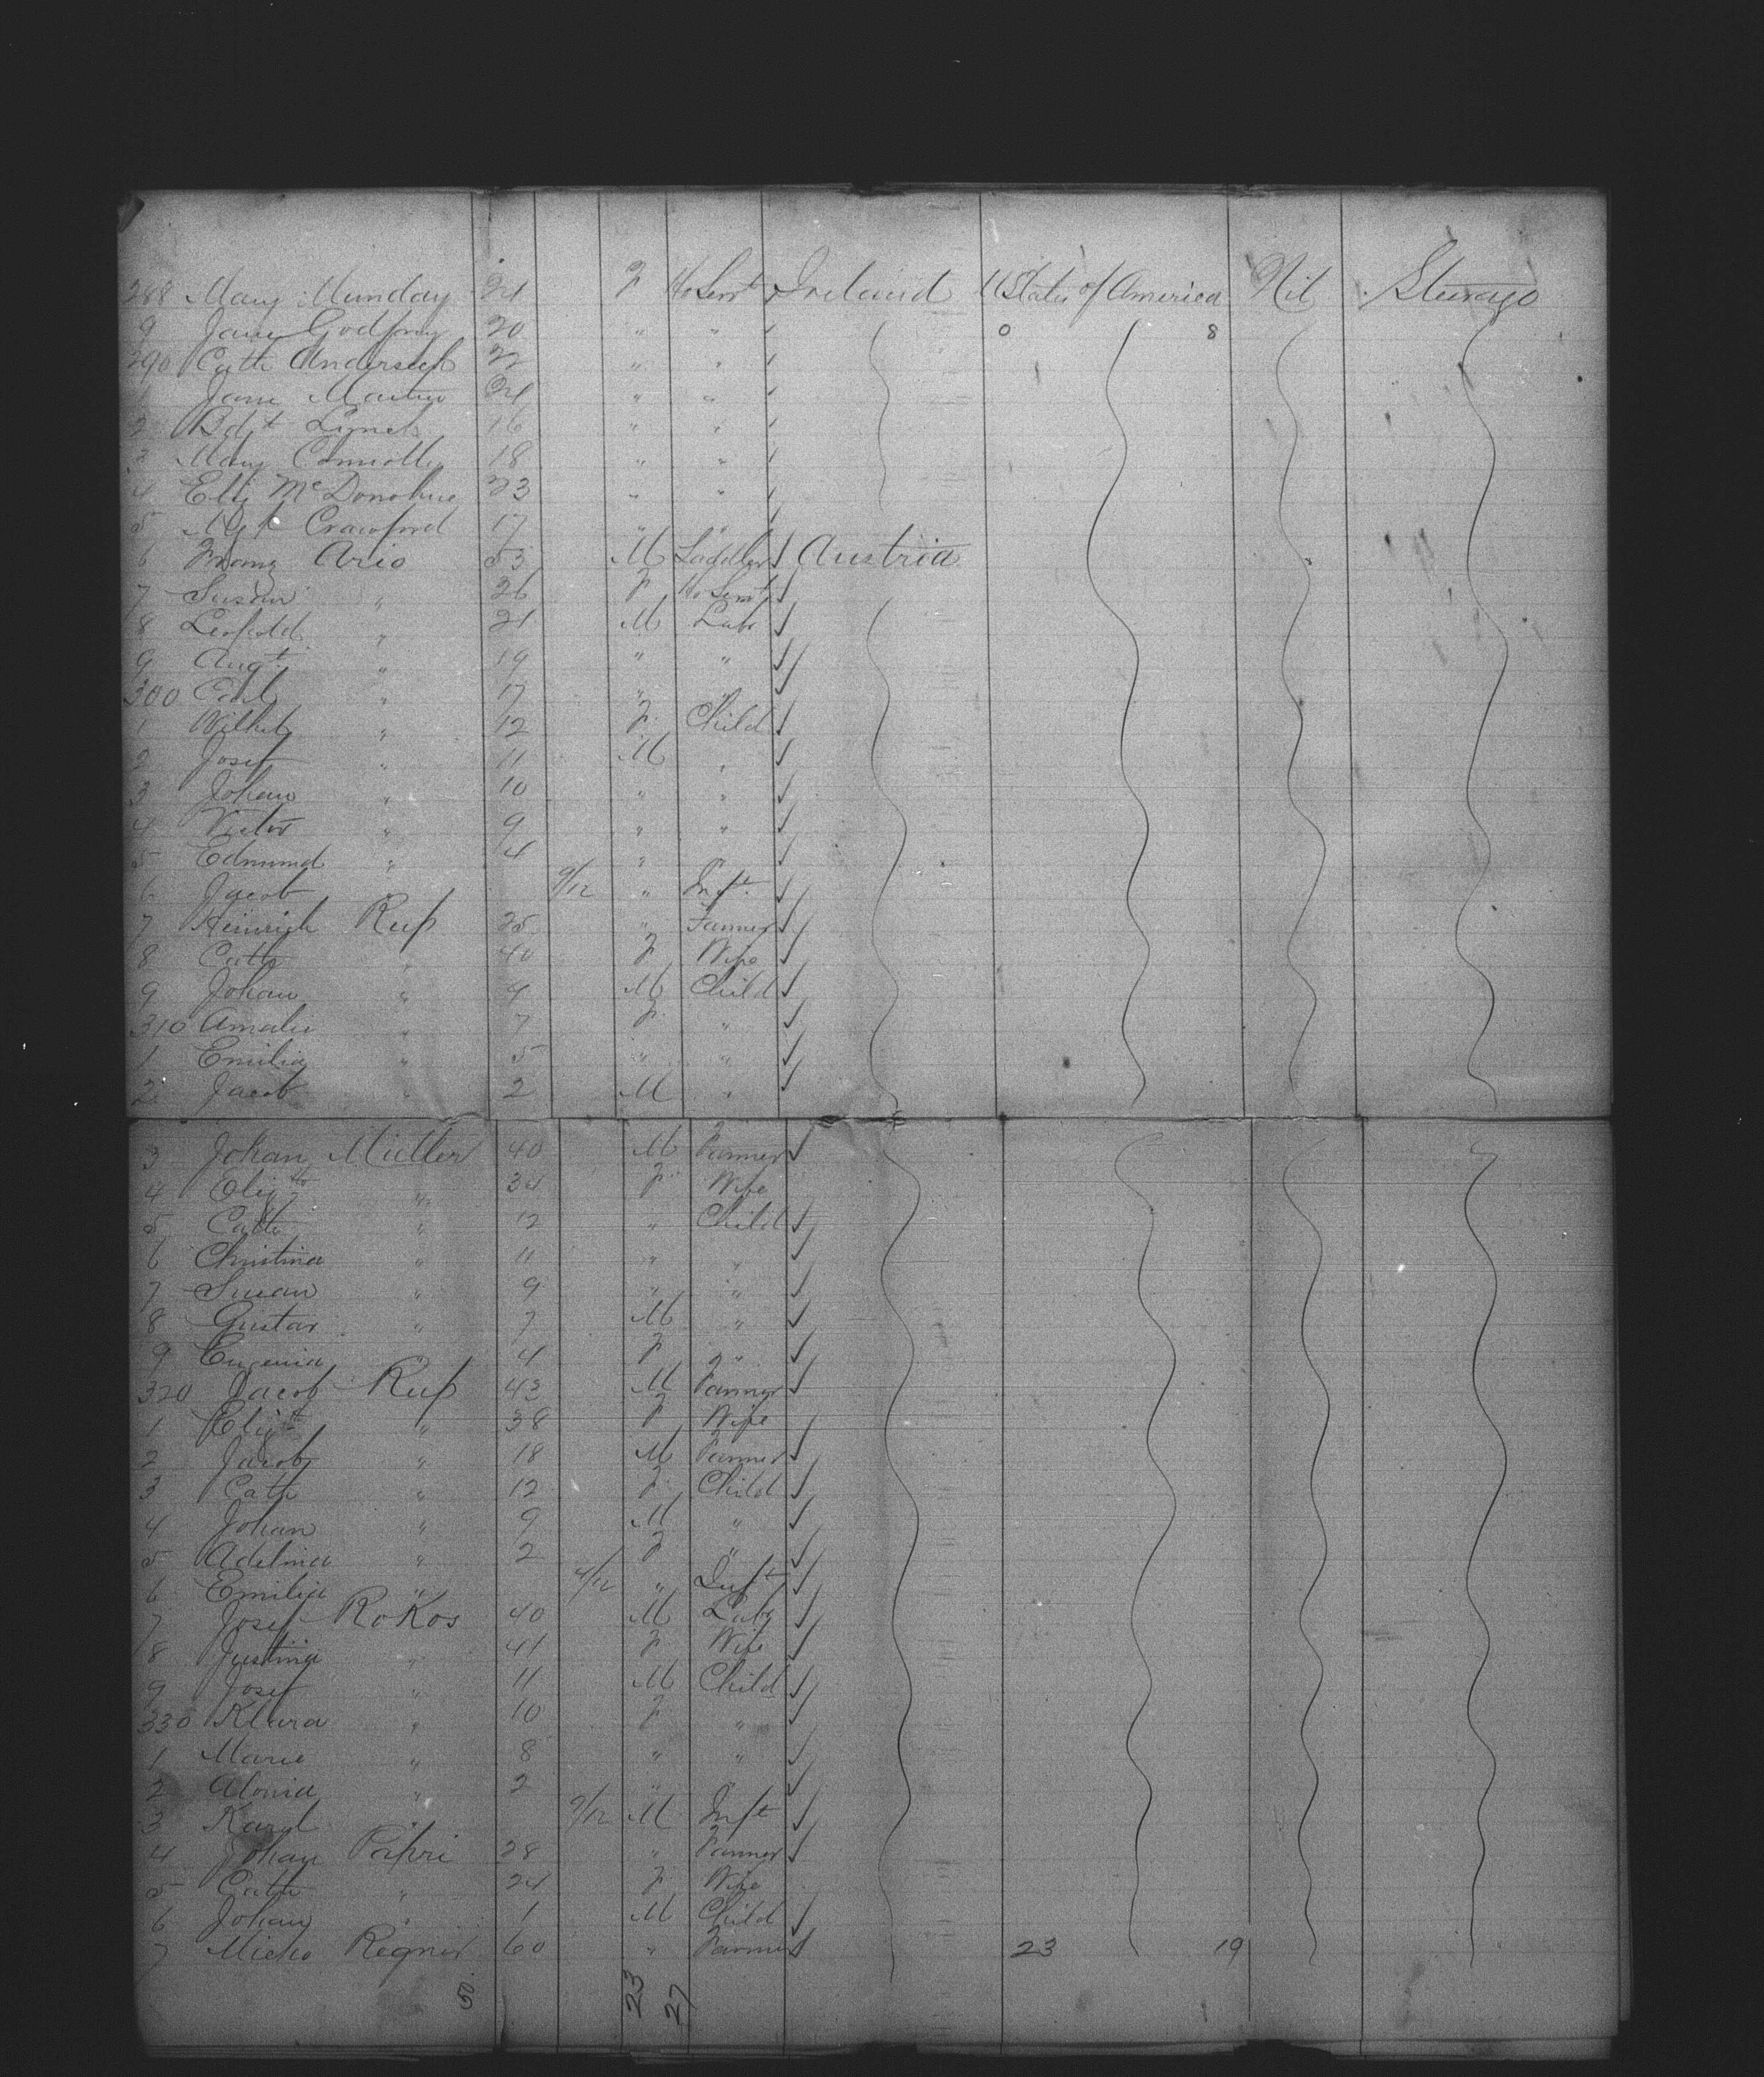 288 Mary Munday 24 F Ho Servt Ireland U States of America Nil Steerage
9 Jane Godfrey 20 " " 0 8
290 Cath 22 " "
1 Jane Martin 24 " "
2 Bdgt Lynch 16 " "
3 Mary Connolly 18 " "
4 Eliz McDonohue 23 " "
5 Mgt Crawford 17 " "
6 Franz Ario 53 M Saddler Austria
7 Susan " 26 F Ho Servt
8 Leopold " 21 M Labr
9 Augt " 19 " "
300 Carl " 17 " "
1 Wilhel " 12 F Child
2 Josef " 11 M "
3 Johan " 10 " "
4 Victor " 9 " "
5 Edmund " 4 "
6 Jacob " 9/12 " Inft
7 Heinrich Rup 25 " Farmer
8 Cath " 40 F Wife
9 Johan " 9 M Child
310 Amalie " 7 F "
1 Emilia " 5 " "
2 Jacob " 2 M "
3 Johan Müller 40 M Farmer
4 Elizth " 34 F Wife
5 Cath " 12 " Child
6 Christina " 11 " "
7 Susan " 9 " "
8 Gustav " 7 M "
9 Eugenia " 4 F "
320 Jacob Rup 43 M Farmer
1 Elizth " 38 F Wife
2 Jacob " 18 M Farmer
3 Cath " 12 F Child
4 Johan " 9 M "
5 Adelina " 2 F "
6 Emilia " 4/12 " Inft
7 Josef RoKos 40 M Labr
8 Justina " 41 F Wife
9 Josef " 11 M Child
330 Klara " 10 F "
1 Marie " 8 " "
2 " 2 " "
3 Karl " 9/12 M Inft
4 Johan 28 " Farmer
5 Cath " 24 F Wife
6 Johan " 1 M Child
7 Regner 60 " Farmer 23 19
50 23 27